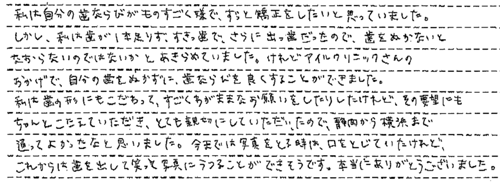 私は自分の歯ならびがものすごく嫌で、ずっと矯正をしたいと思っていました。
しかし、私は歯が1本足りず、すきっ歯で、さらに出っ歯だったので、歯をぬかないと
なおらないのではないかとあきらめていました。けれどアイルクリニックさんの
おかげで、自分の歯をぬかずに、歯ならびを良くすることができました。
私は歯の形にもこだわって、すごくわがままなお願いをしたりしたけれど、その要望にも
ちゃんとこたえていただき、とても親切にしていただいたので、静岡から横浜まで
通ってよかったなと思いました。今までは写真をとる時は、口をとじていたけれど、
これからは歯を出して笑って写真にうつることができそうです。本当にありがとうございました。